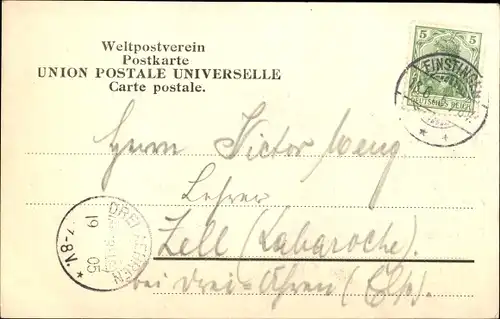 Weltpostverein
Postkarte
UNION POSTALE UNIVERSELLE
Carte postale.
5 5
DEUTSCHES REICH
FINSTINGEN
Herrn Victor Meng
Lehrer
Zell (Labaroche).
bei Drei-Ähren (Els).
DREI ÆHREN
19 05
7-8V.